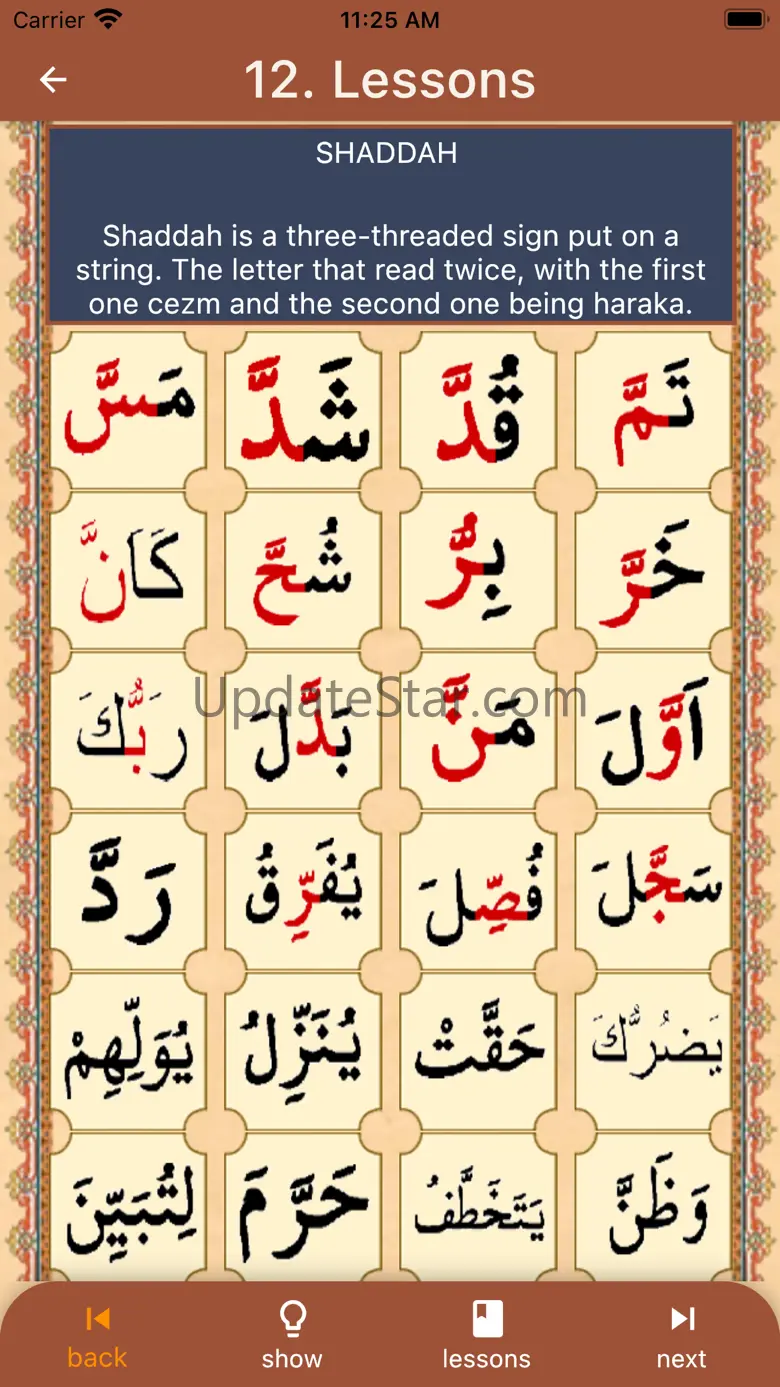 Carrier 11:25 AM
12. Lessons
SHADDAH
Shaddah is a three-threaded sign put on a
string. The letter that read twice, with the first
one cezm and the second one being haraka.
تَمَّ قُدَّ شَدَّ مَسَّ
خَرَّ بِرُّ شُحَّ كَانَّ
اَوَّلَ مَنَّ بَدَّلَ رَبُّكَ
UpdateStar.com
سَجَّلَ فُصِّلَ يُفَرِّقُ رَدَّ
يَضُرُّكَ حَقَّتْ يُنَزِّلُ يُوَلِّهِمْ
وَظَنَّ يَتَخَطَّفُ حَرَّمَ لِتُبَيِّنَ
back show lessons next